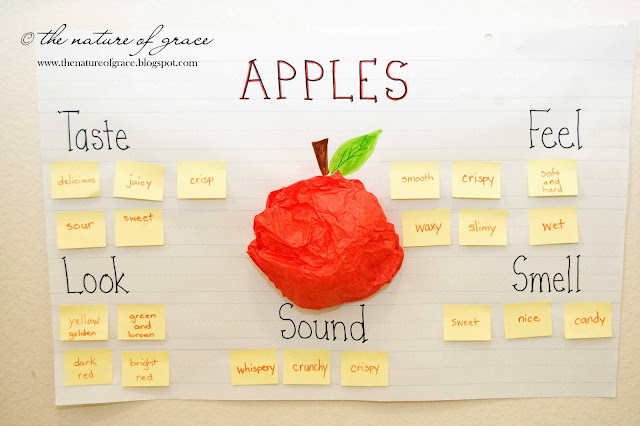 © the nature of grace
www.thenatureofgrace.blogspot.com
APPLES
Taste
delicious
juicy
crisp
sour
sweet
Feel
smooth
crispy
soft
and
hard
waxy
slimy
wet
Look
yellow
golden
green
and
brown
dark
red
bright
red
Sound
whispery
crunchy
crispy
Smell
sweet
nice
candy